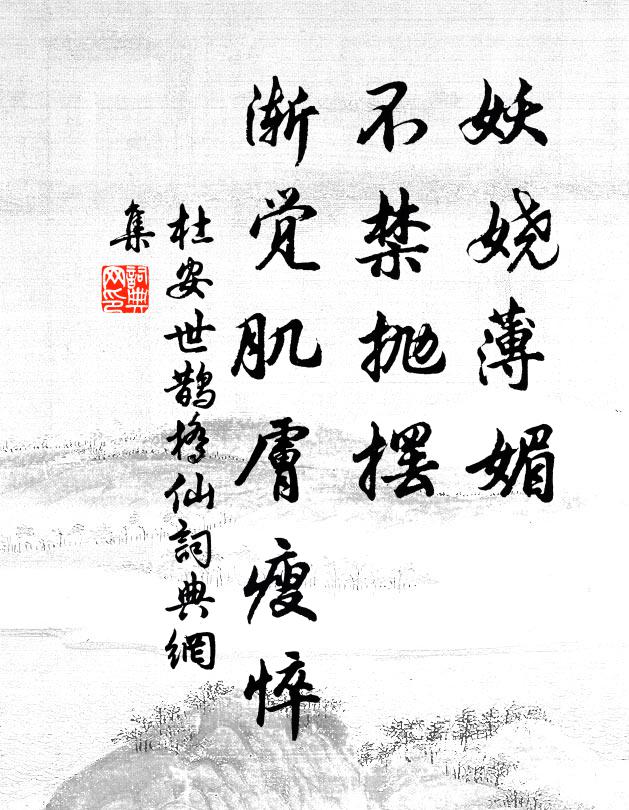 妖娆薄媚
不禁抛摆
渐觉肌膚瘦悴
杜安世鹊橋仙詞典網
集
詞典
网印